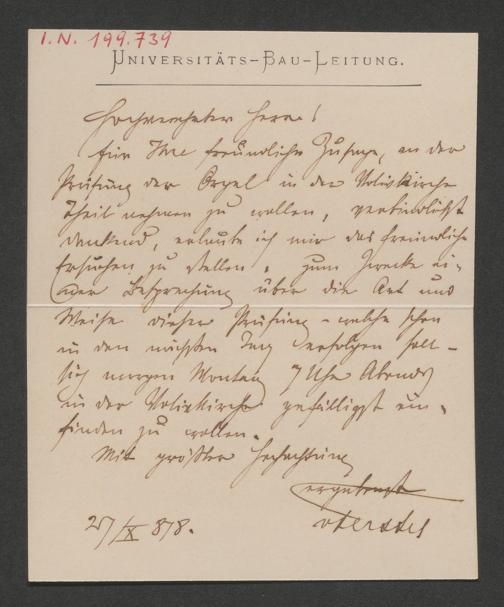 I.N. 199.739
UNIVERSITÄTS-BAU-LEITUNG.
Hochverehrter Herr!
Für Ihre freundliche Zusage, an der
Prüfung der Orgel in der Votivkirche
Theil nehmen zu wollen, verbindlichst
dankend, erlaube ich mir das freundliche
Ersuchen zu stellen, zum Zwecke ei-
ner Besprechung über die Art und
Weise dieser Prüfung – welche schon
in den nächsten Tag erfolgen soll –
sich morgen Montag 7 Uhr Abends
in der Votivkirche gefälligst ein-
finden zu wollen.
Mit größter Hochachtung
ergebenst
27/IX 878.